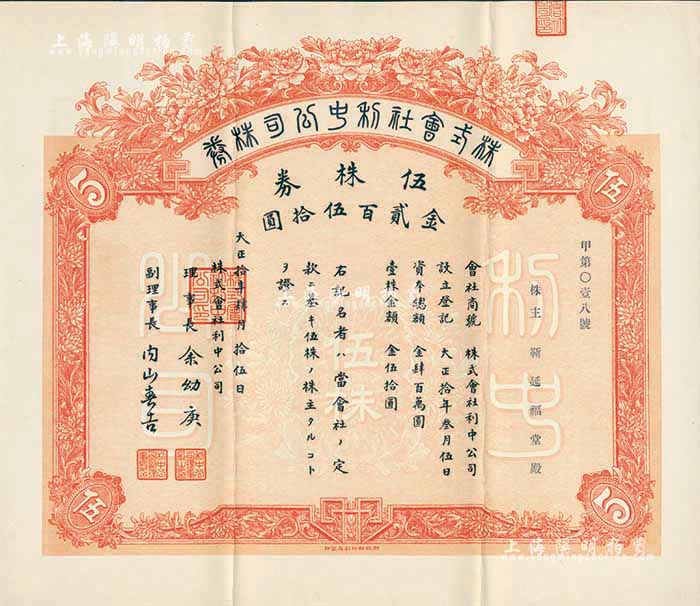 上海陽明拍賣
www.yangmingauction.com
株式會社利中公司株券
伍
5
伍株券
金貳百伍拾圓
甲第〇壹八號
株主 靳延福堂殿
會社商號 株式會社利中公司
設立登記 大正拾年叁月伍日
資本總額 金肆百萬圓
壹株金額 金伍拾圓
右記名者ハ當會社ノ定
款ニ基キ伍株ノ株主タルコト
ヲ證ス
大正拾年肆月拾伍日
株式會社利中公司
理事長 余幼庚
副理事長 向山喜吉
利中公司
伍株
伍
5
上海陽明拍賣
www.yangmingauction.com